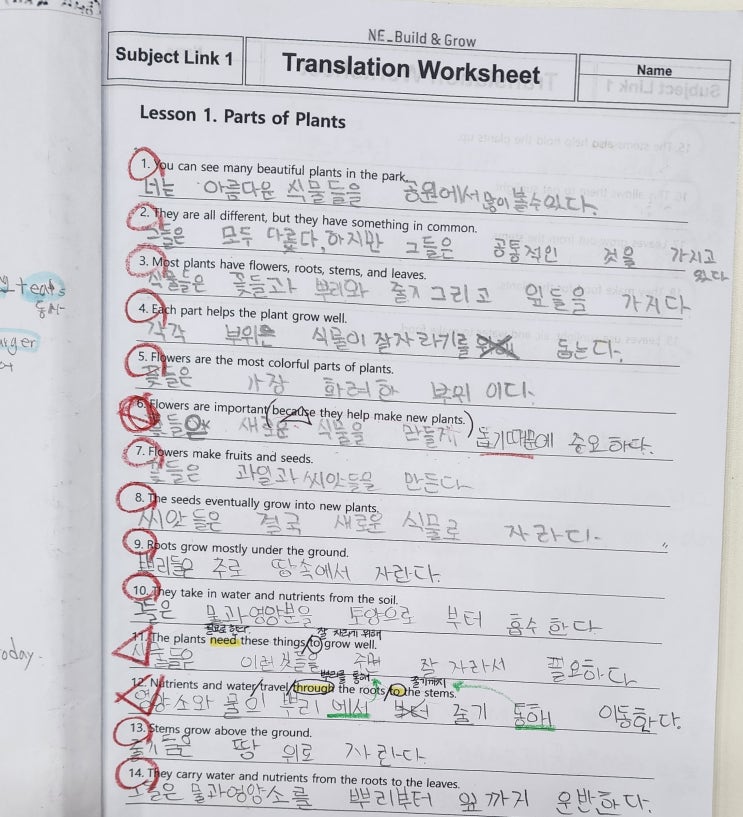 NE_Build & Grow
Subject Link 1
Translation Worksheet
Name
Lesson 1. Parts of Plants
1. You can see many beautiful plants in the park.
너는 아름다운 식물들을 공원에서 많이 볼수있다.
2. They are all different, but they have something in common.
그들은 모두 다르다, 하지만 그들은 공통적인 것을 가지고
있다
3. Most plants have flowers, roots, stems, and leaves.
식물들은 꽃들과 뿌리와 줄기 그리고 잎들을 가지다.
teats
동사
4. Each part helps the plant grow well.
각각 부위는 식물이 잘자라기를 돕는다.
arger
5. Flowers are the most colorful parts of plants.
꽃들은 가장 화려한 부위 이다.
6. Flowers are important because they help make new plants.
꽃들은 새로운 식물을 만들게 돕기때문에 중요하다.
7. Flowers make fruits and seeds.
꽃들은 과일과 씨앗들을 만든다
8. The seeds eventually grow into new plants.
씨앗들은 결국 새로운 식물로 자라다.
9. Roots grow mostly under the ground.
뿌리들은 주로 땅속에서 자란다.
10. They take in water and nutrients from the soil.
그들은 물과영양분을 토양으로 부터 흡수한다.
필요로 한다 잘 자라기 위해
11. The plants need these things to grow well.
식물들은 이러것들을 잘 자라서 필요하다
뿌리를 통해 줄기까지
12. Nutrients and water travel through the roots to the stems.
영양소와 물이 뿌리 에서 줄기 통해 이동한다.
oday.
13. Stems grow above the ground.
줄기들은 땅 위로 자란다
14. They carry water and nutrients from the roots to the leaves.
그들은 물과영양소를 뿌리부터 잎까지 운반한다.